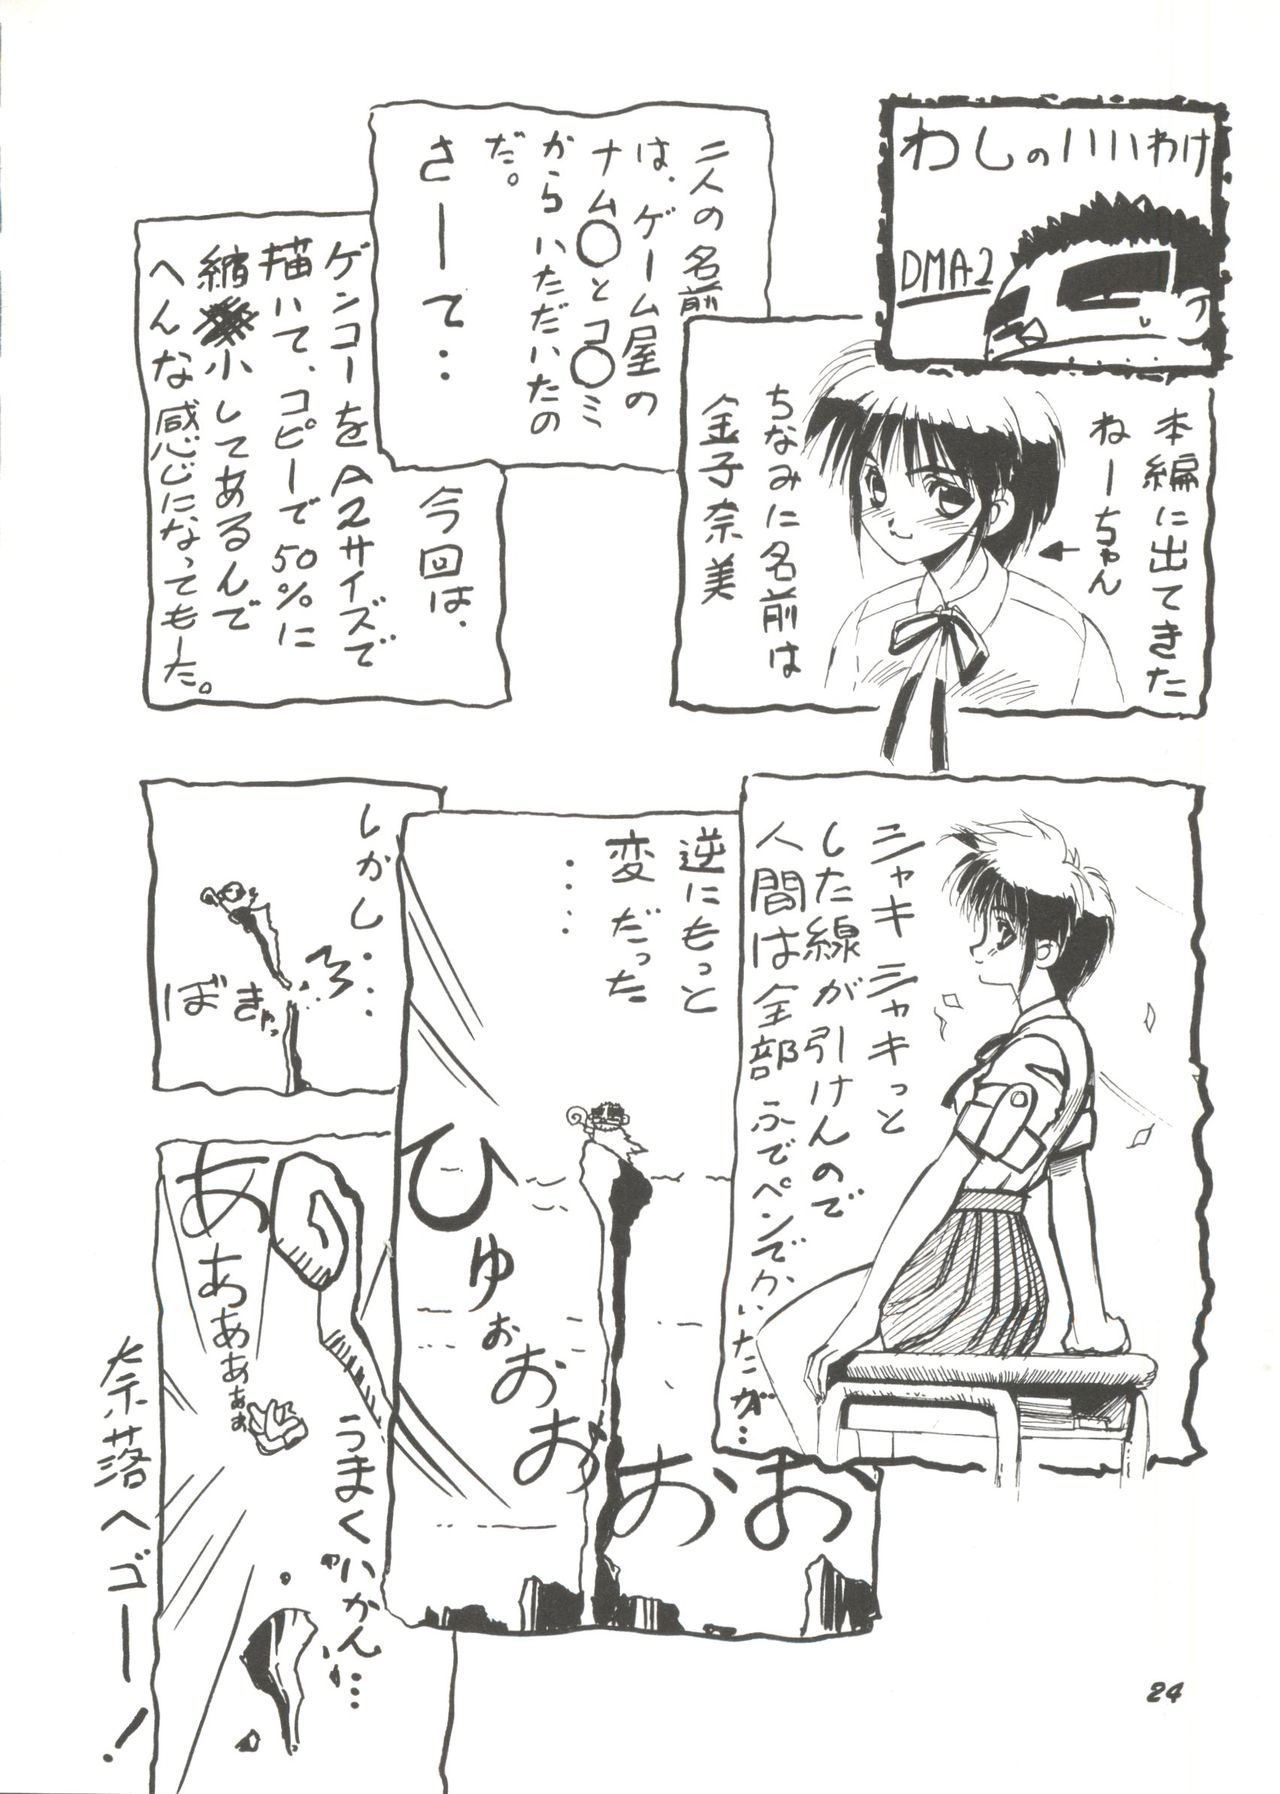 わしのいいわけ
DMA2
本編に出てきた
ねーちゃん
ちなみに名前は
金子奈美
二人の名前
は、ゲーム屋の
ナム○とコ○ミ
からいただいたの
だ。
さーて・・
今回は、
ゲンコーをA2サイズで
描いて、コピーで50%に
縮小してあるんで
へんな感じになってもーた。
シャキシャキっと
した線が引けんので
人間は全部ふでペンでかいたが…
逆にもっと
変だった
・・・・
ひゅぉおおおお
しかし・・・・
ぼきゃっ
あああぁぁぁぁ
うまくいかん…
奈落へゴー!
24